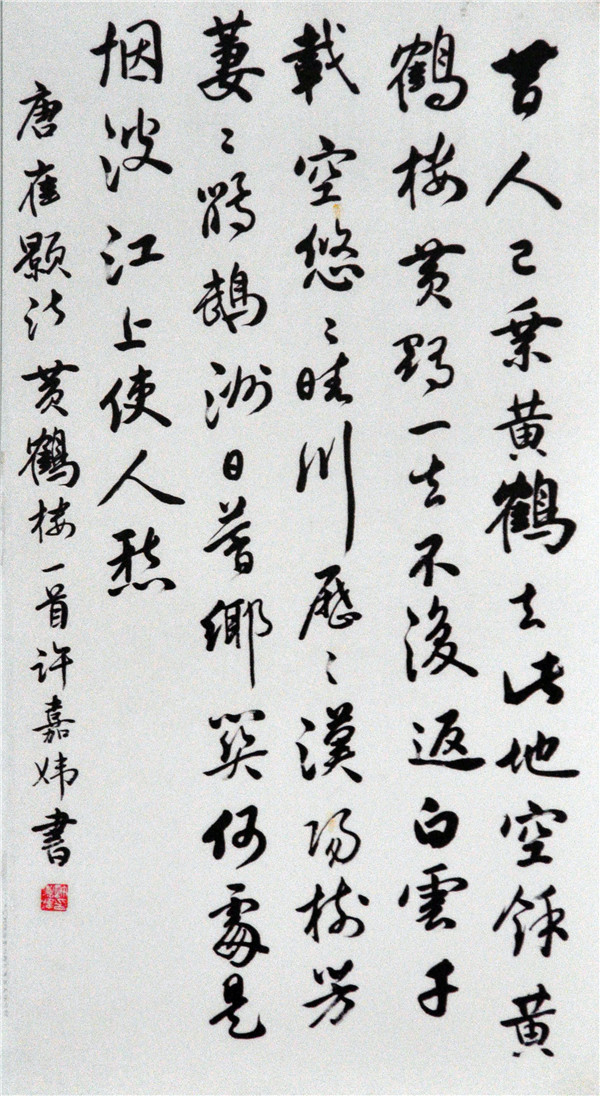 昔人已乘黄鶴去此地空餘黄
鶴楼黄鶴一去不復返白雲千
載空悠〻晴川歷〻漢陽樹芳
萋〻鸚鵡洲日暮鄉關何處是
烟波江上使人愁
唐崔顥詩黄鶴楼一首許嘉媁書